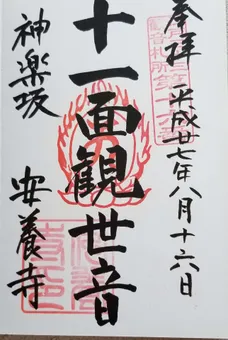 奉拝
平成廿七年八月十六日
十一面観世音
神楽坂
安養寺